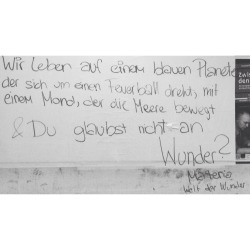 Wir leben auf einem blauen Planete
der sich um einen Feuerball dreht, mit
einem Mond, der die Meere bewegt
& Du glaubst nicht an
Wunder?
Materia
Welt der Wunder
Zwi
den